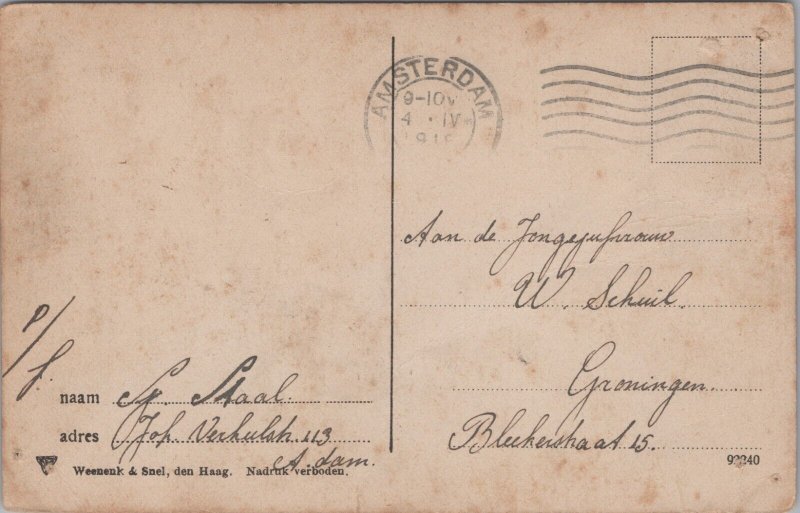 AMSTERDAM
9-10V
4 · IV
Aan de Jongejufvrouw
W. Scheil.
Groningen.
Bleekerstraat 15.
p/
f.
naam Staal
adres Joh Verhulsh 113
A. dam.
Weenenk & Snel, den Haag. Nadruk verboden.